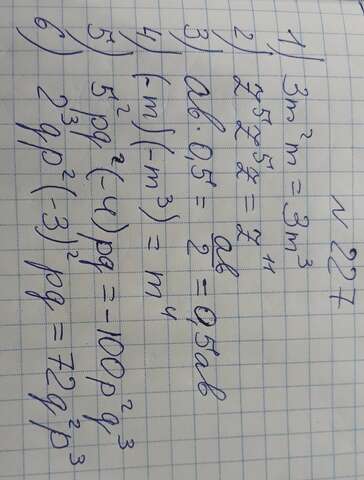 N 227
1) 3m²m = 3m³
2) z⁵z⁵z = z¹¹
3) ab·0,5 = ab/2 = 0,5ab
4) (-m)(-m³) = m⁴
5) 5²pq²(-4)pq = -100p²q³
6) 2³qp²(-3)²pq = 72q²p³